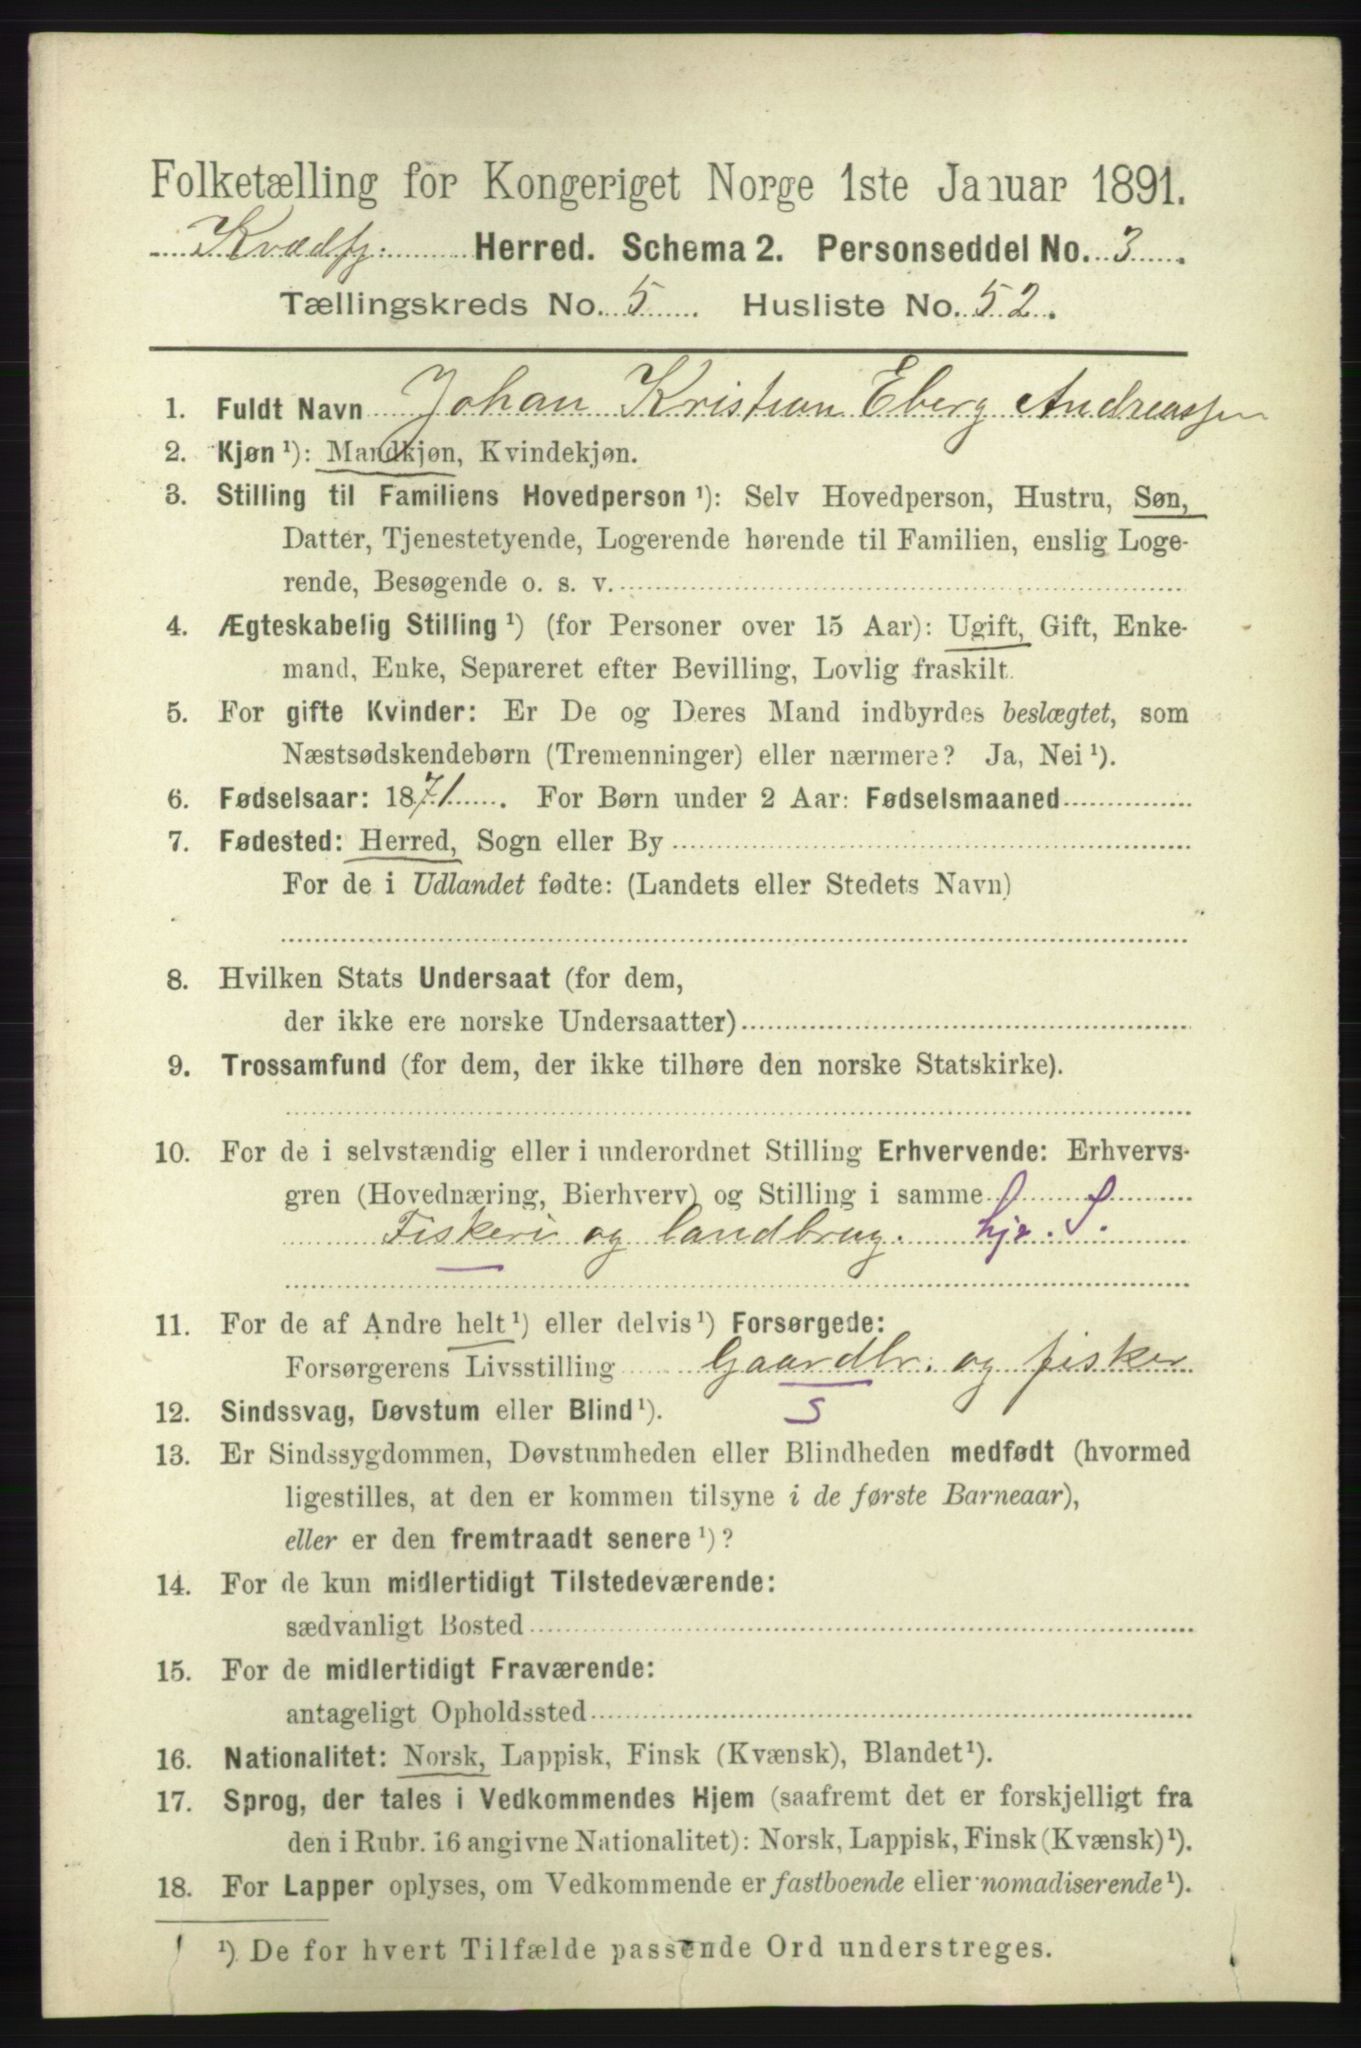 Folketælling for Kongeriget Norge 1ste Januar 1891.
Kvædfj. Herred. Schema 2. Personseddel No. 3.
Tællingskreds No. 5. Husliste No. 52.
1. Fuldt Navn Johan Kristian Eberg Andreassen
2. Kjøn ¹): Mandkjøn, Kvindekjøn.
3. Stilling til Familiens Hovedperson ¹): Selv Hovedperson, Hustru, Søn,
Datter, Tjenestetyende, Logerende hørende til Familien, enslig Loge-
rende, Besøgende o. s. v.
4. Ægteskabelig Stilling ¹) (for Personer over 15 Aar): Ugift, Gift, Enke-
mand, Enke, Separeret efter Bevilling, Lovlig fraskilt.
5. For gifte Kvinder: Er De og Deres Mand indbyrdes beslægtet, som
Næstsødskendebørn (Tremenninger) eller nærmere? Ja, Nei ¹).
6. Fødselsaar: 1871. For Børn under 2 Aar: Fødselsmaaned
7. Fødested: Herred, Sogn eller By
For de i Udlandet fødte: (Landets eller Stedets Navn)
8. Hvilken Stats Undersaat (for dem,
der ikke ere norske Undersaatter)
9. Trossamfund (for dem, der ikke tilhøre den norske Statskirke).
10. For de i selvstændig eller i underordnet Stilling Erhvervende: Erhvervs-
gren (Hovednæring, Bierhverv) og Stilling i samme
Fiskeri og landbrug. hjo. S.
11. For de af Andre helt ¹) eller delvis ¹) Forsørgede:
Forsørgerens Livsstilling Gaardbr. og fisker
S
12. Sindssvag, Døvstum eller Blind ¹).
13. Er Sindssygdommen, Døvstumheden eller Blindheden medfødt (hvormed
ligestilles, at den er kommen tilsyne i de første Barneaar),
eller er den fremtraadt senere ¹)?
14. For de kun midlertidigt Tilstedeværende:
sædvanligt Bosted
15. For de midlertidigt Fraværende:
antageligt Opholdssted
16. Nationalitet: Norsk, Lappisk, Finsk (Kvænsk), Blandet ¹).
17. Sprog, der tales i Vedkommendes Hjem (saafremt det er forskjelligt fra
den i Rubr. 16 angivne Nationalitet): Norsk, Lappisk, Finsk (Kvænsk) ¹).
18. For Lapper oplyses, om Vedkommende er fastboende eller nomadiserende ¹).
¹) De for hvert Tilfælde passende Ord understreges.